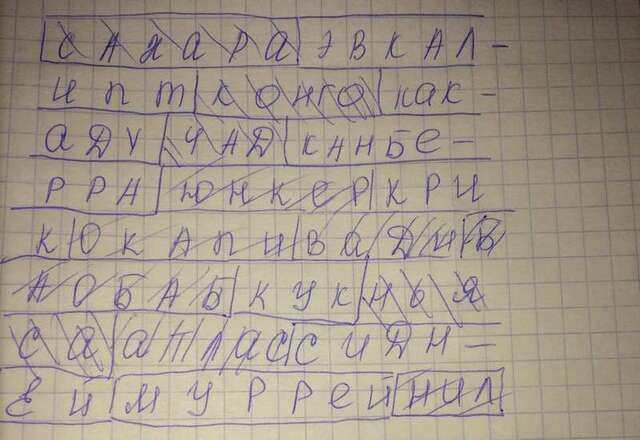 САХАРАЭВКАЛ-
ИПТКОНГОКАК-
АДУЧАДКАНБЕ-
РРАЮНКЕРКРИ
КОКАПИВАДИБ
АОБАБКУКНЬЯ
СААТЛАССИДН-
ЕЙМУРРЕЙНИЛ